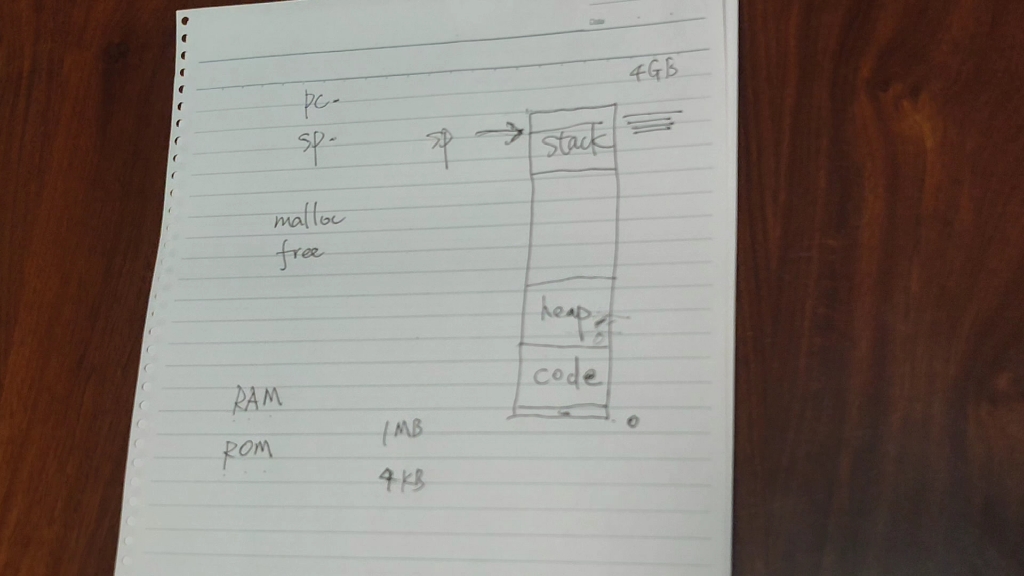 4GB
pc-
sp-
sp
stack
malloc
free
heap
code
RAM
0
ROM
1MB
4KB